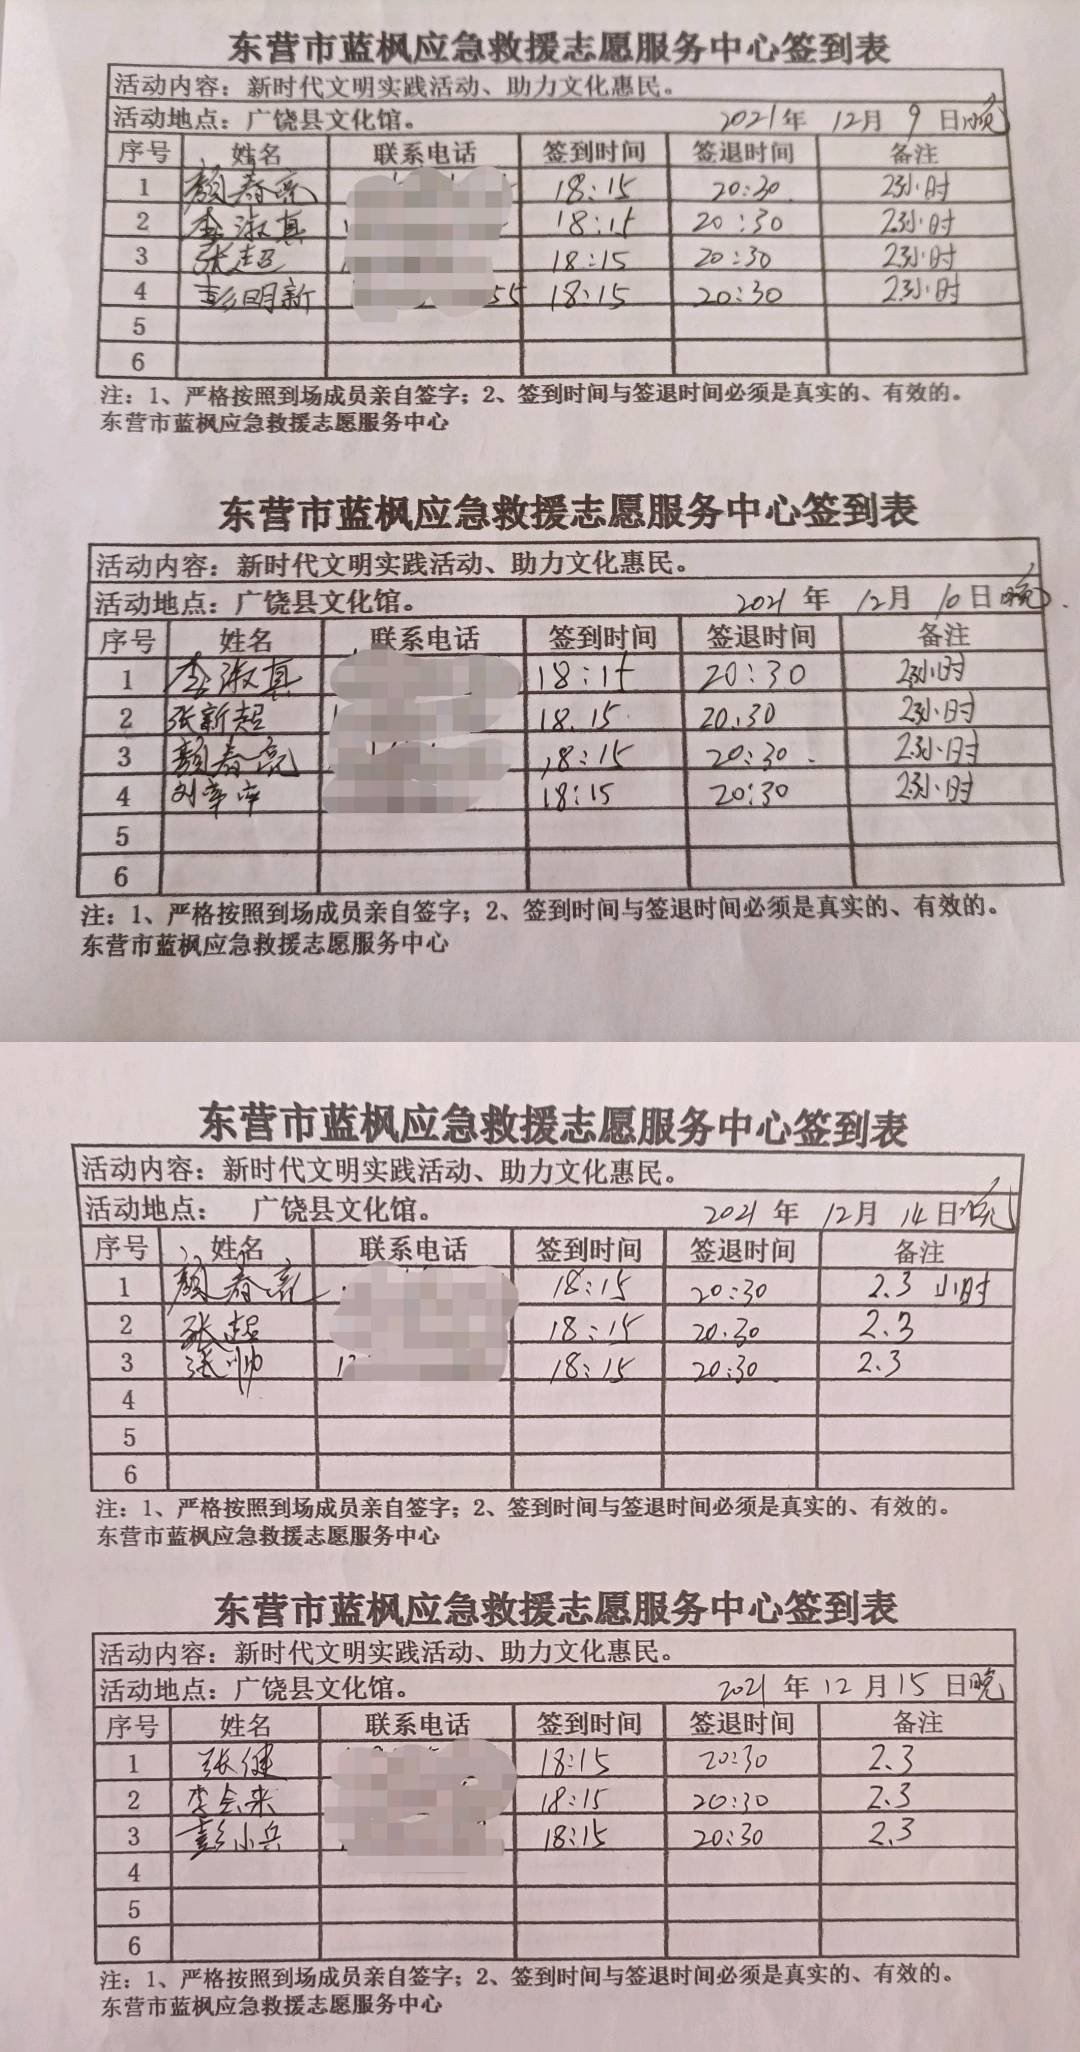 东营市蓝枫应急救援志愿服务中心签到表
活动内容：新时代文明实践活动、助力文化惠民。
活动地点：广饶县文化馆。 2021年 12月 9日晚
序号 姓名 联系电话 签到时间 签退时间 备注
1 颜春亮 18:15 20:30 2.3小时
2 李淑真 18:15 20:30 2.3小时
3 张超 18:15 20:30 2.3小时
4 彭明新 55 18:15 20:30 2.3小时
5
6
注：1、严格按照到场成员亲自签字；2、签到时间与签退时间必须是真实的、有效的。
东营市蓝枫应急救援志愿服务中心
东营市蓝枫应急救援志愿服务中心签到表
活动内容：新时代文明实践活动、助力文化惠民。
活动地点：广饶县文化馆。 2021年 12月 10日晚
序号 姓名 联系电话 签到时间 签退时间 备注
1 李淑真 18:15 20:30 2.3小时
2 张新超 18.15 20.30 2.3小时
3 颜春亮 18:15 20:30 2.3小时
4 18:15 20:30 2.3小时
5
6
注：1、严格按照到场成员亲自签字；2、签到时间与签退时间必须是真实的、有效的。
东营市蓝枫应急救援志愿服务中心
东营市蓝枫应急救援志愿服务中心签到表
活动内容：新时代文明实践活动、助力文化惠民。
活动地点： 广饶县文化馆。 2021年 12月 14日晚
序号 姓名 联系电话 签到时间 签退时间 备注
1 颜春亮 18:15 20:30 2.3小时
2 张超 18:15 20.30 2.3
3 张帅 18:15 20:30 2.3
4
5
6
注：1、严格按照到场成员亲自签字；2、签到时间与签退时间必须是真实的、有效的。
东营市蓝枫应急救援志愿服务中心
东营市蓝枫应急救援志愿服务中心签到表
活动内容：新时代文明实践活动、助力文化惠民。
活动地点：广饶县文化馆。 2021年12月15日晚
序号 姓名 联系电话 签到时间 签退时间 备注
1 张健 18:15 20:30 2.3
2 李会来 18:15 20:30 2.3
3 彭小兵 18:15 20:30 2.3
4
5
6
注：1、严格按照到场成员亲自签字；2、签到时间与签退时间必须是真实的、有效的。
东营市蓝枫应急救援志愿服务中心